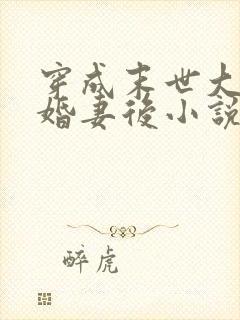 穿成末世大
婚妻後小說
醉虎